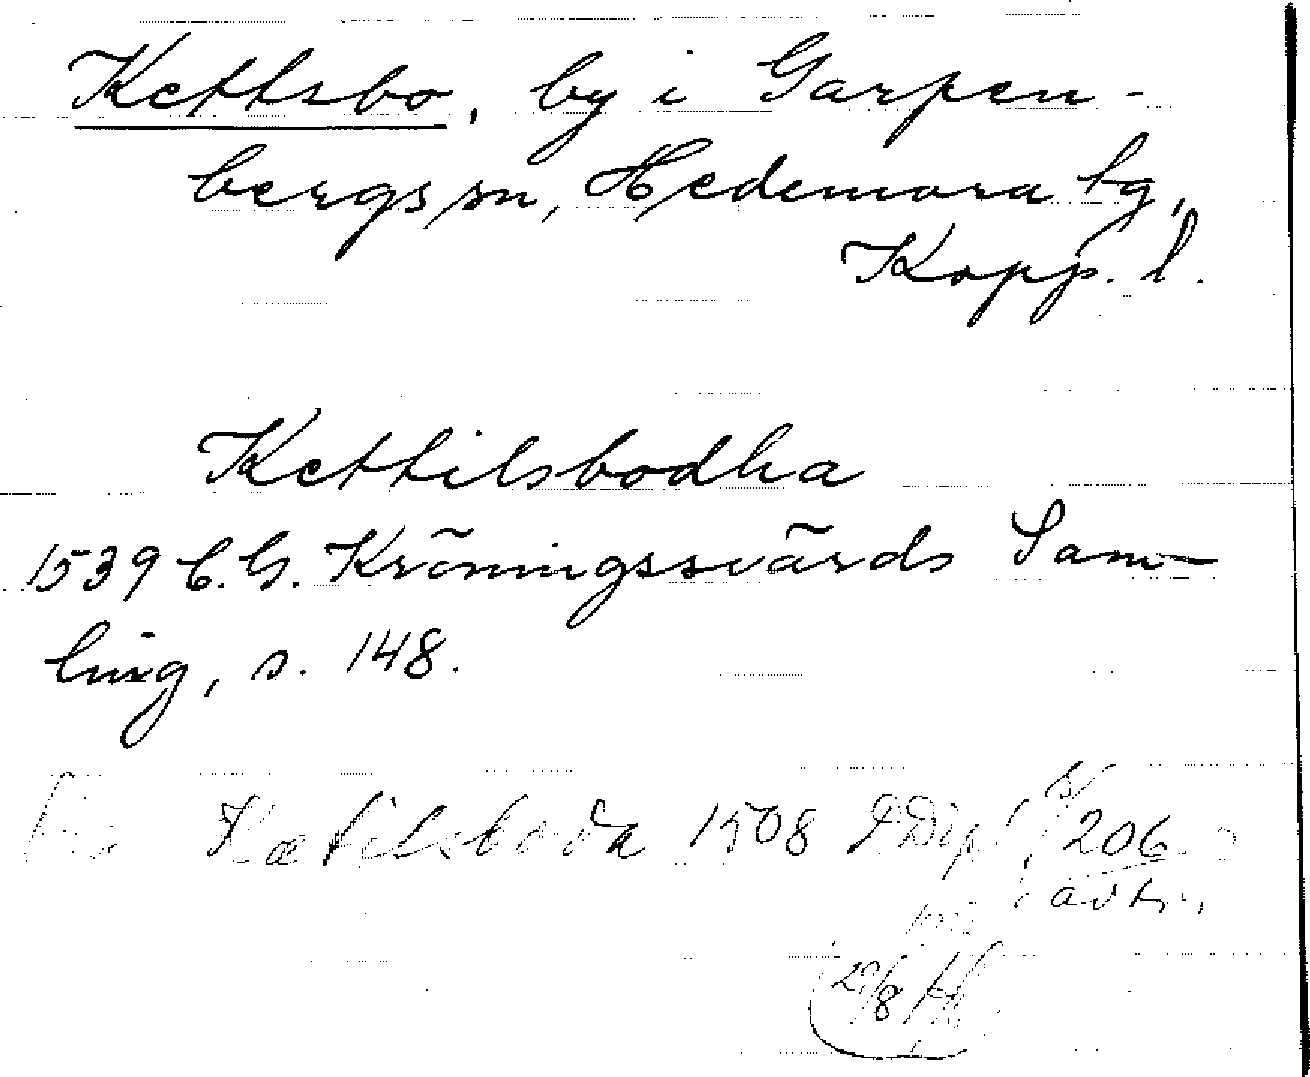 Kettsbo, by i Garpen-
bergs sn, Hedemora bg,
Kopp. l.
Kettilsbodha
1539 C.G. Kröningssvärds Sam-
ling, s. 148.
Kætilsboda 1508 DDip 206
avtr.